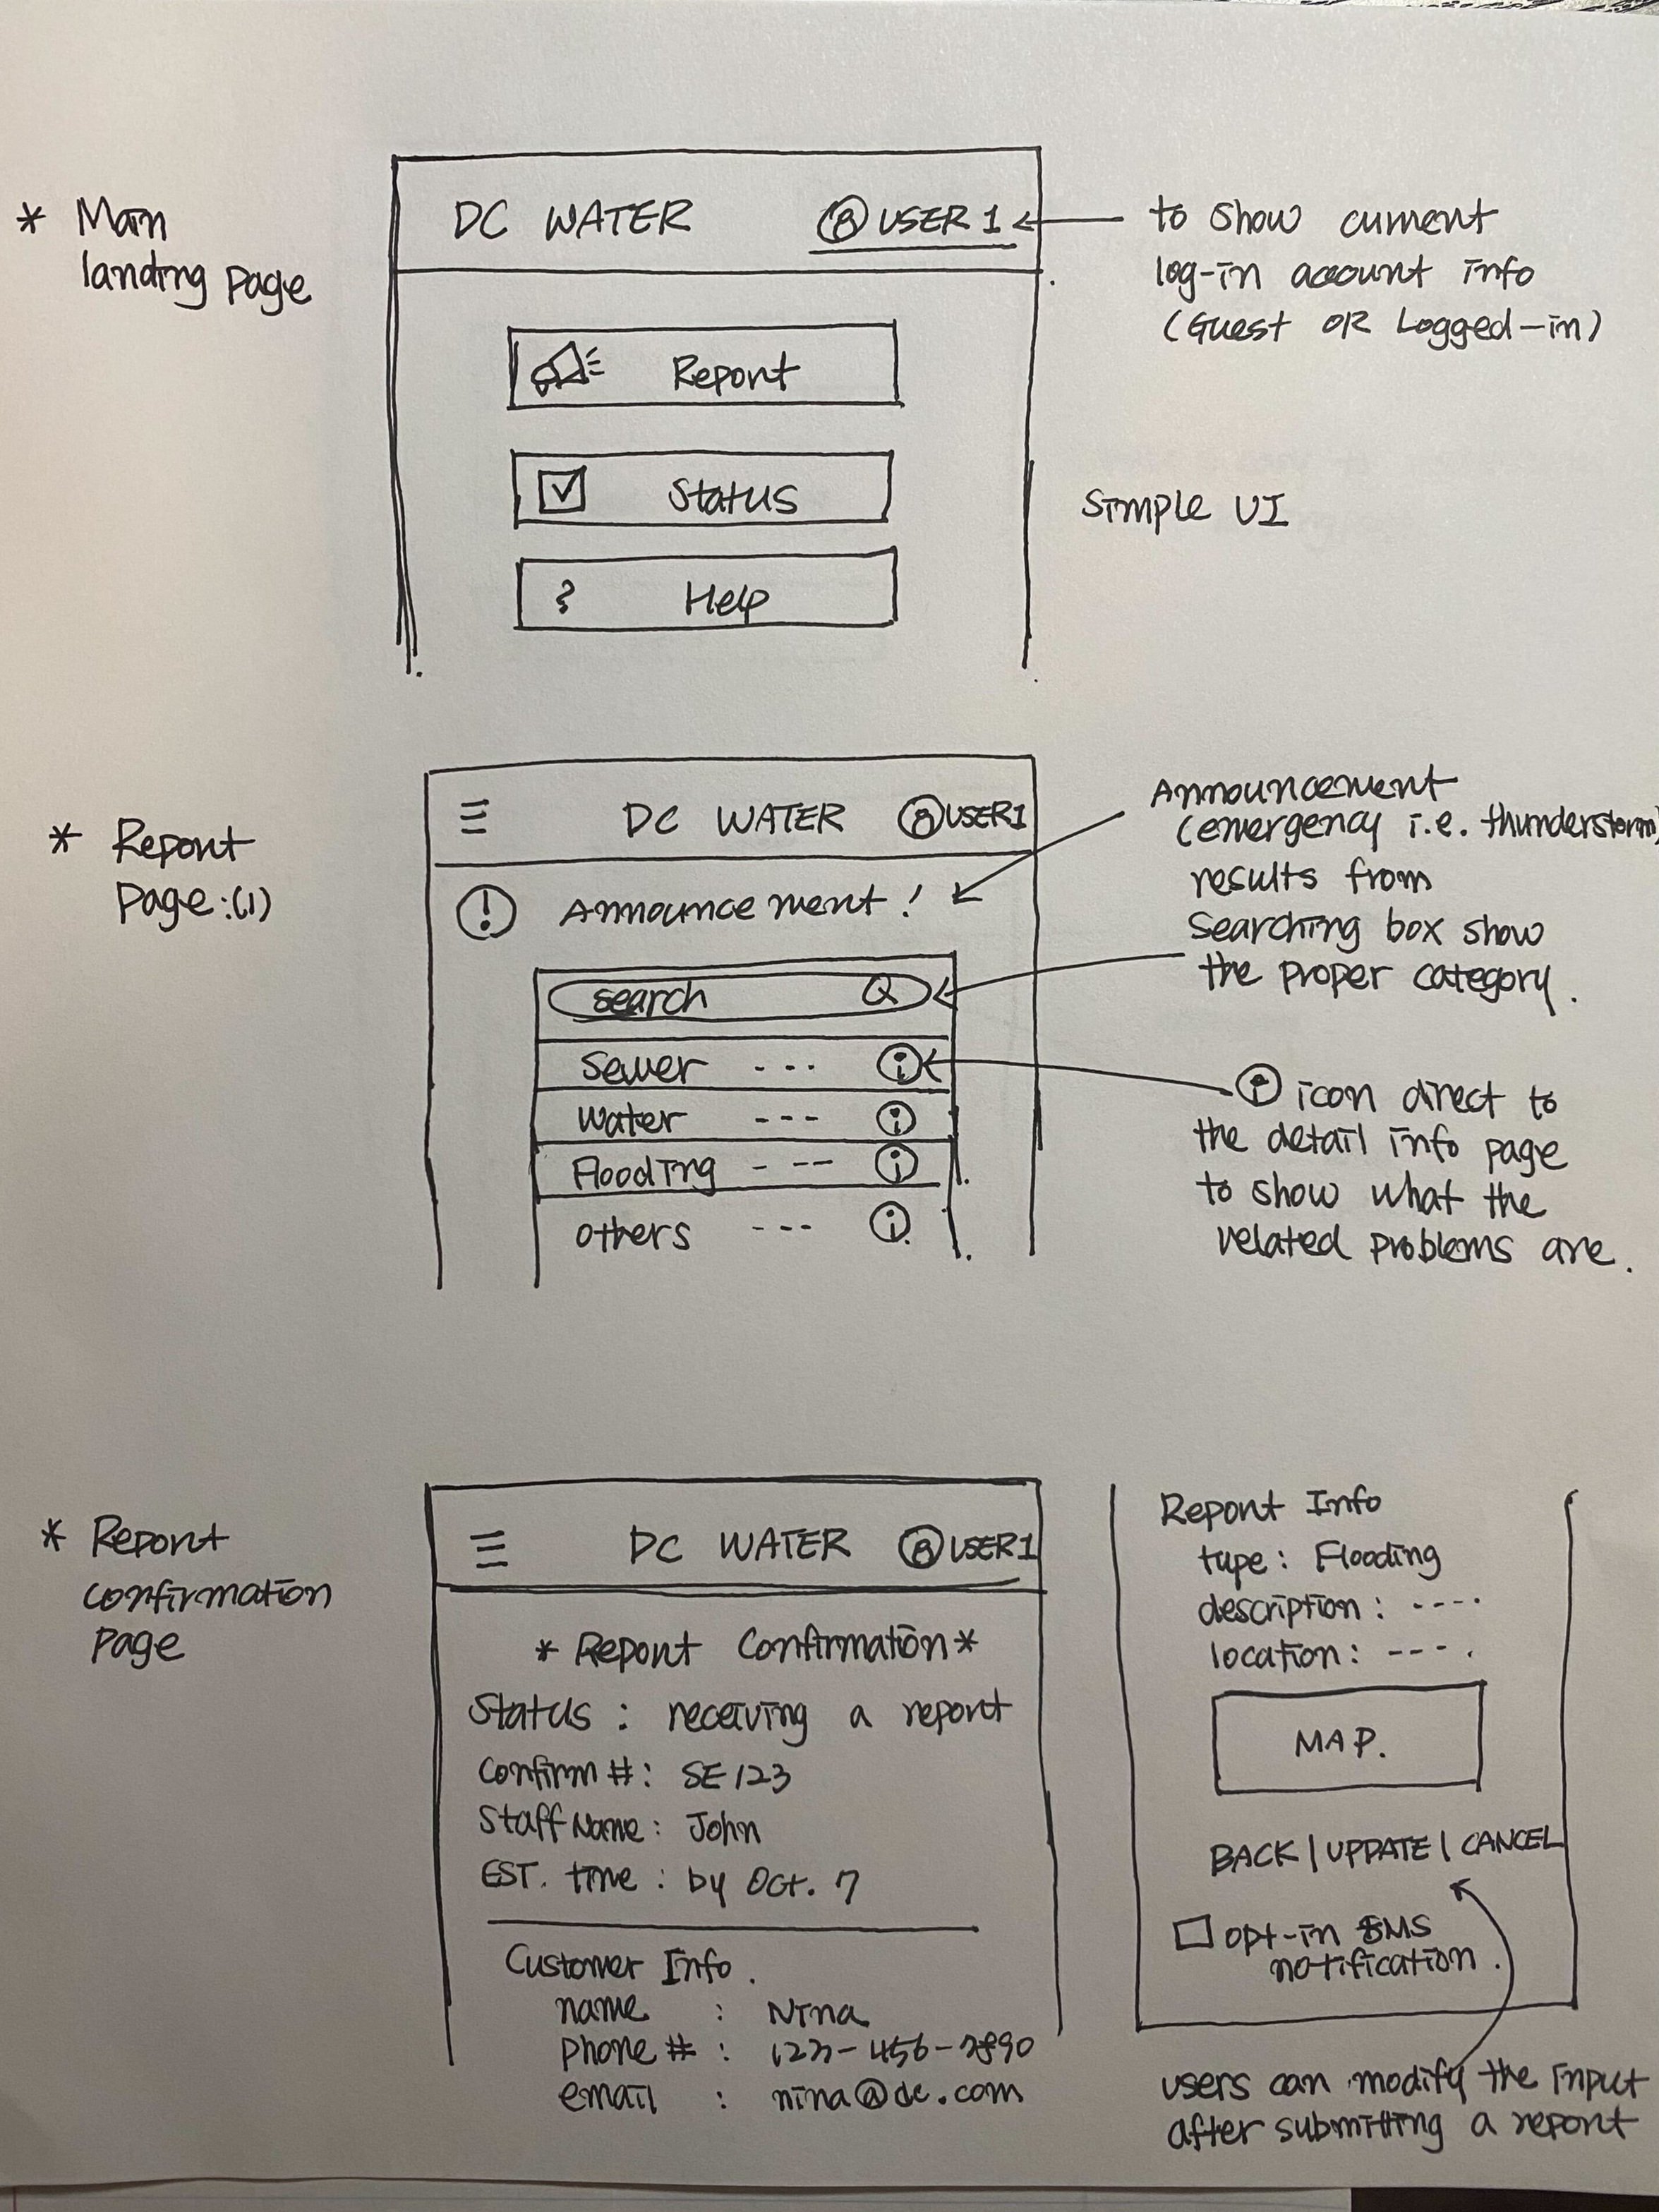 * Main
landing page
DC WATER
USER 1
to show current
log-in account info
(Guest OR Logged-in)
Report
Status
? Help
Simple UI
* Report
Page:(1)
DC WATER
USER1
! Announcement!
Announcement
(emergency i.e. thunderstorm)
results from
searching box show
the proper category.
search
Sewer --- i
Water --- i
Flooding - -- i
others --- i
i icon direct to
the detail info page
to show what the
related problems are.
* Report
confirmation
page
DC WATER
USER1
* Report Confirmation *
Status : receiving a report
Confirm #: SE123
Staff Name: John
EST. time : by Oct. 7
Customer Info.
name : Nina
phone # : 123-456-7890
email : nina@dc.com
Report Info
type: Flooding
description: ----
location: ----.
MAP.
BACK | UPDATE | CANCEL
opt-in SMS
notification.
users can modify the input
after submitting a report